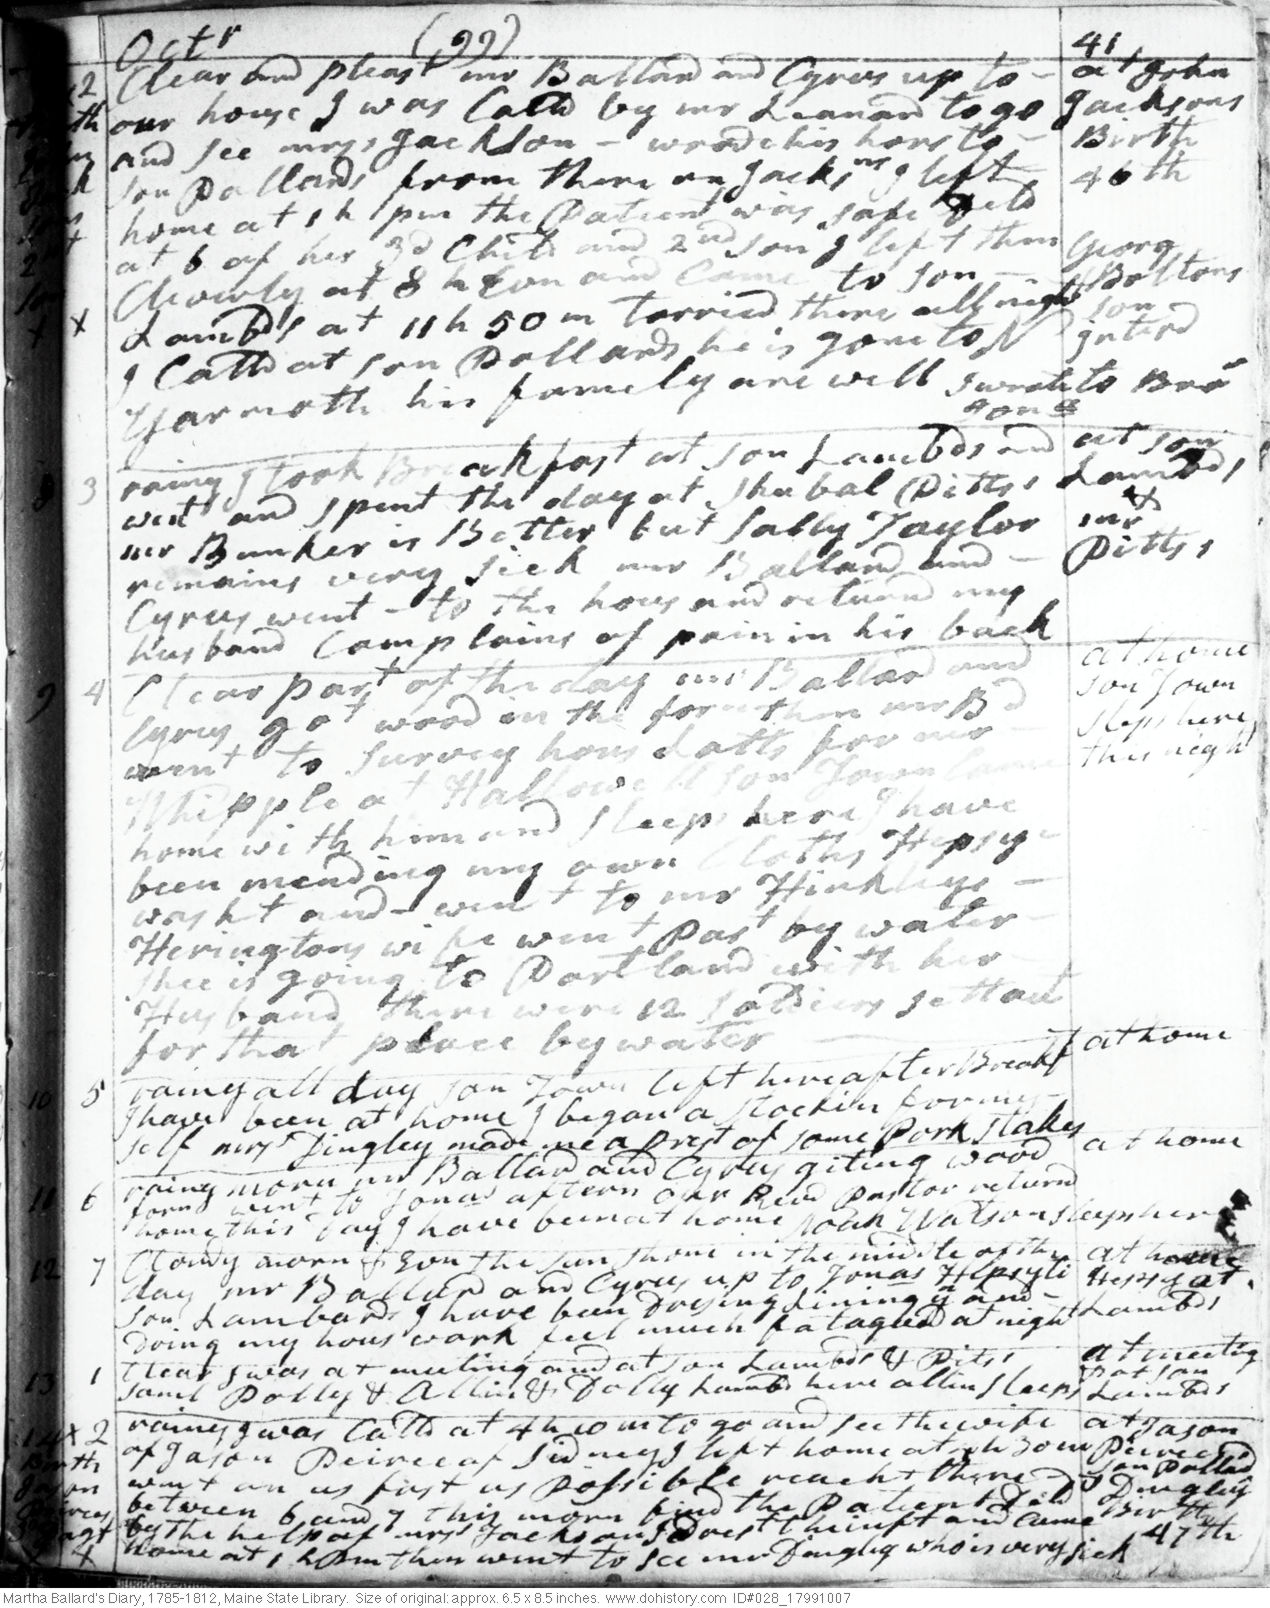 Octr (99) 41
x2 Clear and pleast mr Ballard and Cyrus up to - at John
our house I was Calld by mr Leanard to go Jacksons
and see mrss Jackson - wrode his hors to - Birth
son Pollards from there on Jacksns I left 46th
home at 1 h pm the Patient was safe
at 6 of her 3d Child and 2nd son I left them Georg
Cleverly at 8 h Evn and Came to son - Boltons
x x Lambds at 11 h 50 m tarried there all night son
I Calld at son Pollards he is gone to N interd
Yarmoth his famely are well I wrote to Bror
Jons
3 rainy I took Breakfast at son Lambds and at son
went and spent the day at Shubal Pittss Lambds
mr Bunker is Better but Sally Taylor & mr
remains very sick mr Ballard and - Pittss
Cyrus went - to the hous and returnd my
husband Complains of pain in his back
9 4 Clear part of the day mr Ballard and at home
Cyrus got wood in the fore then mr Bd son Town
went to survey hous Latts for mr - sleps here
Whipple at Hallowell son Town Came this night
home with him and sleeps here I have
been mending my own Cloths Hepsy
washt and - went to mr Hinkleys -
Heringtons wife went Past by water -
shee is going to Portland with her -
Husband there were 12 soldiers sett out
for that place by water
10 5 rainy all day son Town left here after Breakft at home
I have been at home I began a stockin for my-
self mrs Dingley made me a prest of some Pork stakes
11 6 rainy morn mr Ballard and Cyrus giting wood at home
forn went to Jonas aftern our Revd Pastor returnd
home this day I have been at home Noah Watson sleeps her
12 7 Cloudy morn & Evn the sun shone in the middle of the at home
day mr Ballard and Cyrus up to Jonas Hepsy ti Hepsy at
son Lambards I have been Dresing Lining yn and - Lambds
doing my hous work feel much fatagued at night
13 1 Clear I was at meeting and at son Lambds & Pitss at meeting
saml Polly & Allin & Dolly Lambd here allin sleeps & at son Lambds
14x 2 rainy I was Calld at 4 h 10 m to go and see the wife at Jason
Birth of Jason Peirce of Sidney I left home at h 30 m Peirce
Jason went on as fast as Possible reacht there son Pollard
Peirces between 6 and 7 this morn find the Patient & Dingley
by the help of mrs Jackson I drest the inft and Came Birth
x home at 1 h pm then went to see mr Dingley who is very sick 47th
Martha Ballard's Diary, 1785-1812, Maine State Library. Size of original: approx. 6.5 x 8.5 inches. www.dohistory.com ID#028_17991007